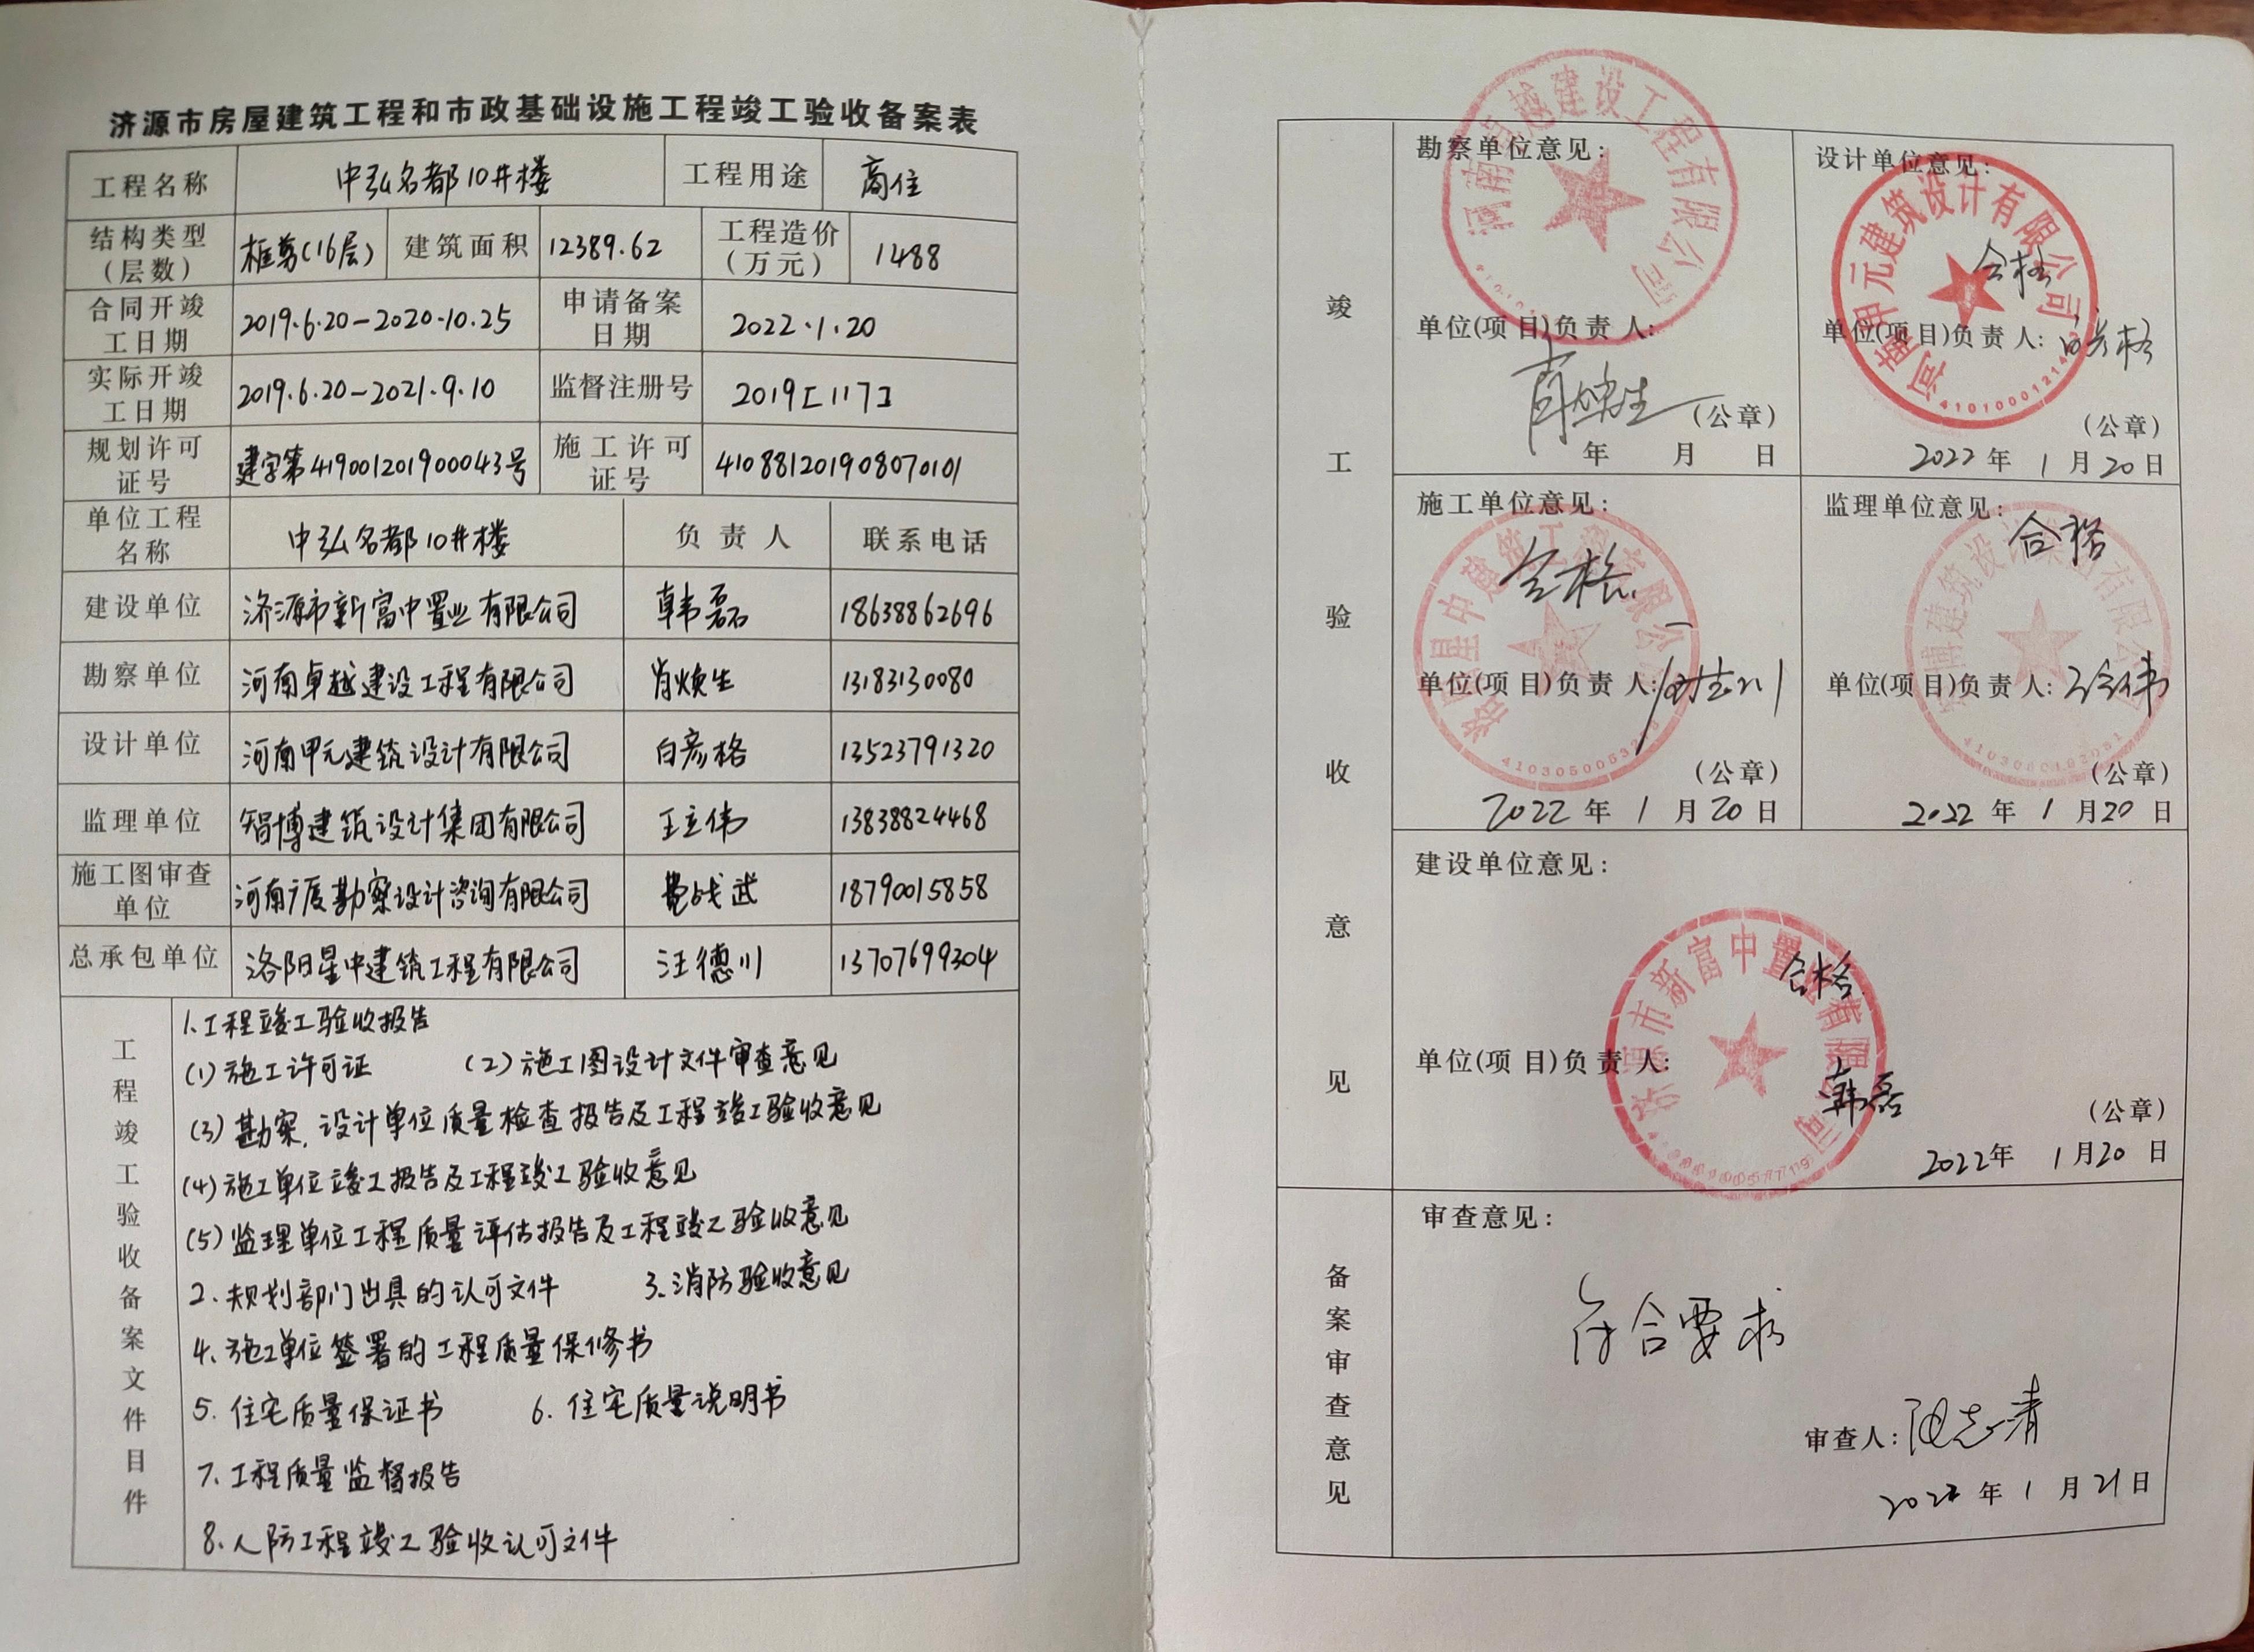 济源市房屋建筑工程和市政基础设施工程竣工验收备案表
工程名称 中弘名都10#楼 工程用途 高住
结构类型（层数） 框剪(16层) 建筑面积 12389.62 工程造价（万元） 1488
合同开竣工日期 2019.6.20-2020.10.25 申请备案日期 2022.1.20
实际开竣工日期 2019.6.20-2021.9.10 监督注册号 2019[117]
规划许可证号 建字第419001201900043号 施工许可证号 410881201908070101
单位工程名称 中弘名都10#楼 负责人 联系电话
建设单位 济源市新富中置业有限公司 韩磊 18638862696
勘察单位 河南卓越建设工程有限公司 肖焕生 13183130080
设计单位 河南甲元建筑设计有限公司 白彦格 13523791320
监理单位 智博建筑设计集团有限公司 王立伟 13838824468
施工图审查单位 河南广厦勘察设计咨询有限公司 战武 18790015858
总承包单位 洛阳星中建筑工程有限公司 汪德川 13707699304
工程竣工验收备案文件目件
1.工程竣工验收报告
(1)施工许可证 (2)施工图设计文件审查意见
(3)勘察,设计单位质量检查报告及工程竣工验收意见
(4)施工单位竣工报告及工程竣工验收意见
(5)监理单位工程质量评估报告及工程竣工验收意见
2.规划部门出具的认可文件 3.消防验收意见
4.施工单位签署的工程质量保修书
5.住宅质量保证书 6.住宅质量说明书
7.工程质量监督报告
8.人防工程竣工验收认可文件
竣工验收意见
勘察单位意见：
河南卓越建设工程有限公司
单位(项目)负责人:
肖焕生
(公章)
年 月 日
设计单位意见：
河南甲元建筑设计有限公司
合格
单位(项目)负责人: 白彦格
(公章)
2022年1月20日
施工单位意见：
洛阳星中建筑工程有限公司
合格
单位(项目)负责人:
(公章)
2022年1月20日
监理单位意见：
合格
智博建筑设计集团有限公司
单位(项目)负责人: 王立伟
(公章)
2022年1月20日
建设单位意见：
济源市新富中置业有限公司
合格
单位(项目)负责人:
韩磊
(公章)
2022年1月20日
备案审查意见
审查意见：
符合要求
审查人:
2022年1月21日